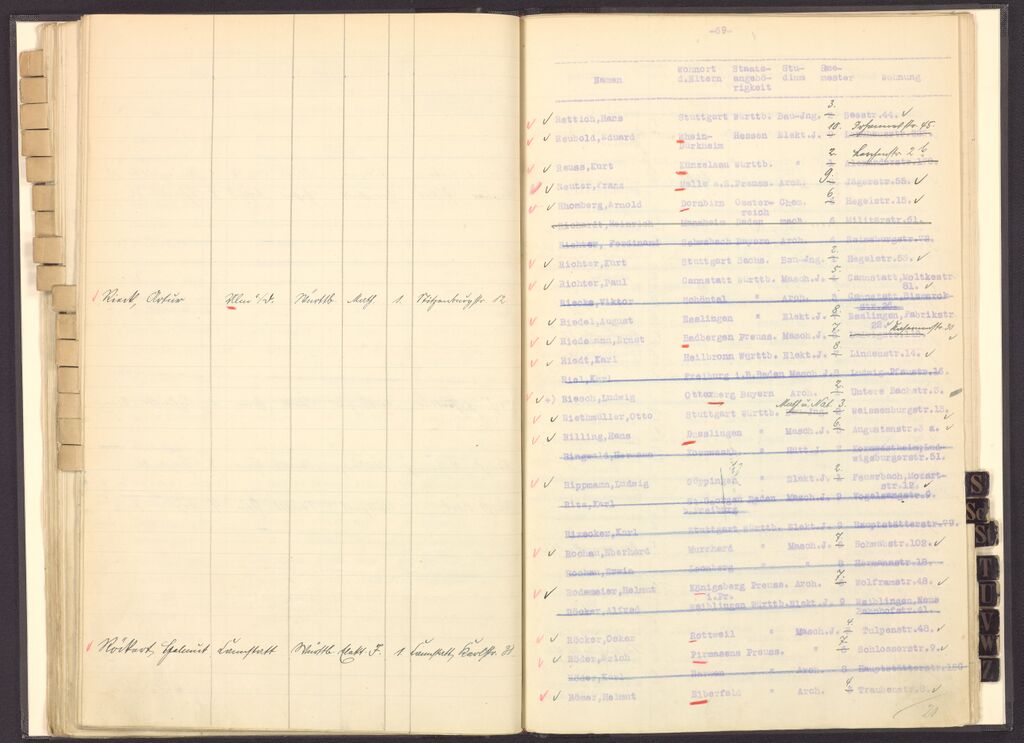 Rieck, Artur Ulm a/D. Württb Math 1. Stitzenburgstr. 12
Röckert, Helmut Cannstatt Württb Elekt. J. 1 Cannstatt, Karlstr. 31
-69-
Wohnort Staats- Stu- Se-
Namen d.Eltern angehö- dium mester Wohnung
rigkeit
3.
Rettich,Hans Stuttgart Württb. Bau-Jng. Seestr.44.
10. Johannesstr. 45
Reubold,Eduard Rhein- Hessen Elekt.J.
Dürkheim
2.
Reuss,Kurt Künzelsau Württb. "
9.
Reuter,Franz Halle a.S.Preuss. Arch. Jägerstr.55.
6.
Rhomberg,Arnold Dornbirn Oester- Chem. Hegelstr.15.
reich
Richardt,Heinrich Mannheim Baden mach. 6 Militärstr.61.
Richter, Ferdinand Schwabach Bayern Arch.
2.
Richter,Kurt Stuttgart Sachs. Bau-Jng. Hegelstr.53.
5.
Richter,Paul Cannstatt Württb. Masch.J. Cannstatt,Moltkestr.
81.
Riecke,Viktor Schöntal " Arch. Cannstatt,Bismarck-
str.36.
8.
Riedel,August Esslingen " Elekt.J. Esslingen,Fabrikstr.
22.
7.
Riedemann,Ernst Badbergen Preuss. Masch.J.
8.
Riedt,Karl Heilbronn Württb. Elekt.J. Lindenstr.14.
Riel,Karl Freiburg i.B.Baden Masch.J.8 Ludwig-Pfaustr.16.
2.
+) Riesch,Ludwig Ottenberg Bayern Arch. Untere Bachstr.3.
Math u. Nat 3.
Riethmüller,Otto Stuttgart Württb. Weissenburgstr.13.
6.
Rilling,Hans Dusslingen " Masch.J. Augustenstr.3 a.
Ringwald,Hermann " Hütt.J. Kornwestheim,Lud-
wigsburgerstr.51.
2.
Rippmann,Ludwig Göppingen Elekt.J. Feuerbach,Mozart-
str.12.
Ritz,Karl St.Georgen Baden Masch.J. 9 Vogelsangstr.9.
b.Freiburg
Rizecker,Karl Stuttgart Württb. Elekt.J. 8 Hauptstätterstr.79.
7.
Rochau,Eberhard Murrhardt " Masch.J. Schwabstr.102.
Rochau,Erwin Leonberg " " 8 Hermannstr.18.
7.
Rodemeier,Helmut Königsberg Preuss. Arch. Wolframstr.48.
i.Pr.
Röcker,Alfred Waiblingen Württb.Elekt.J. 9 Waiblingen,Neue
Bahnhofstr.41.
4.
Röcker,Oskar Rottweil " Masch.J. Tulpenstr.48.
7.
Röder,Erich Pirmasens Preuss. " Schlosserstr.9.
Röder,Karl Barmen " Arch. 8 Hauptstätterstr.136
4.
Römer,Helmut Elberfeld " Arch. Traubenstr.8.
20
S
Sch
St
T
U
V
W
Z